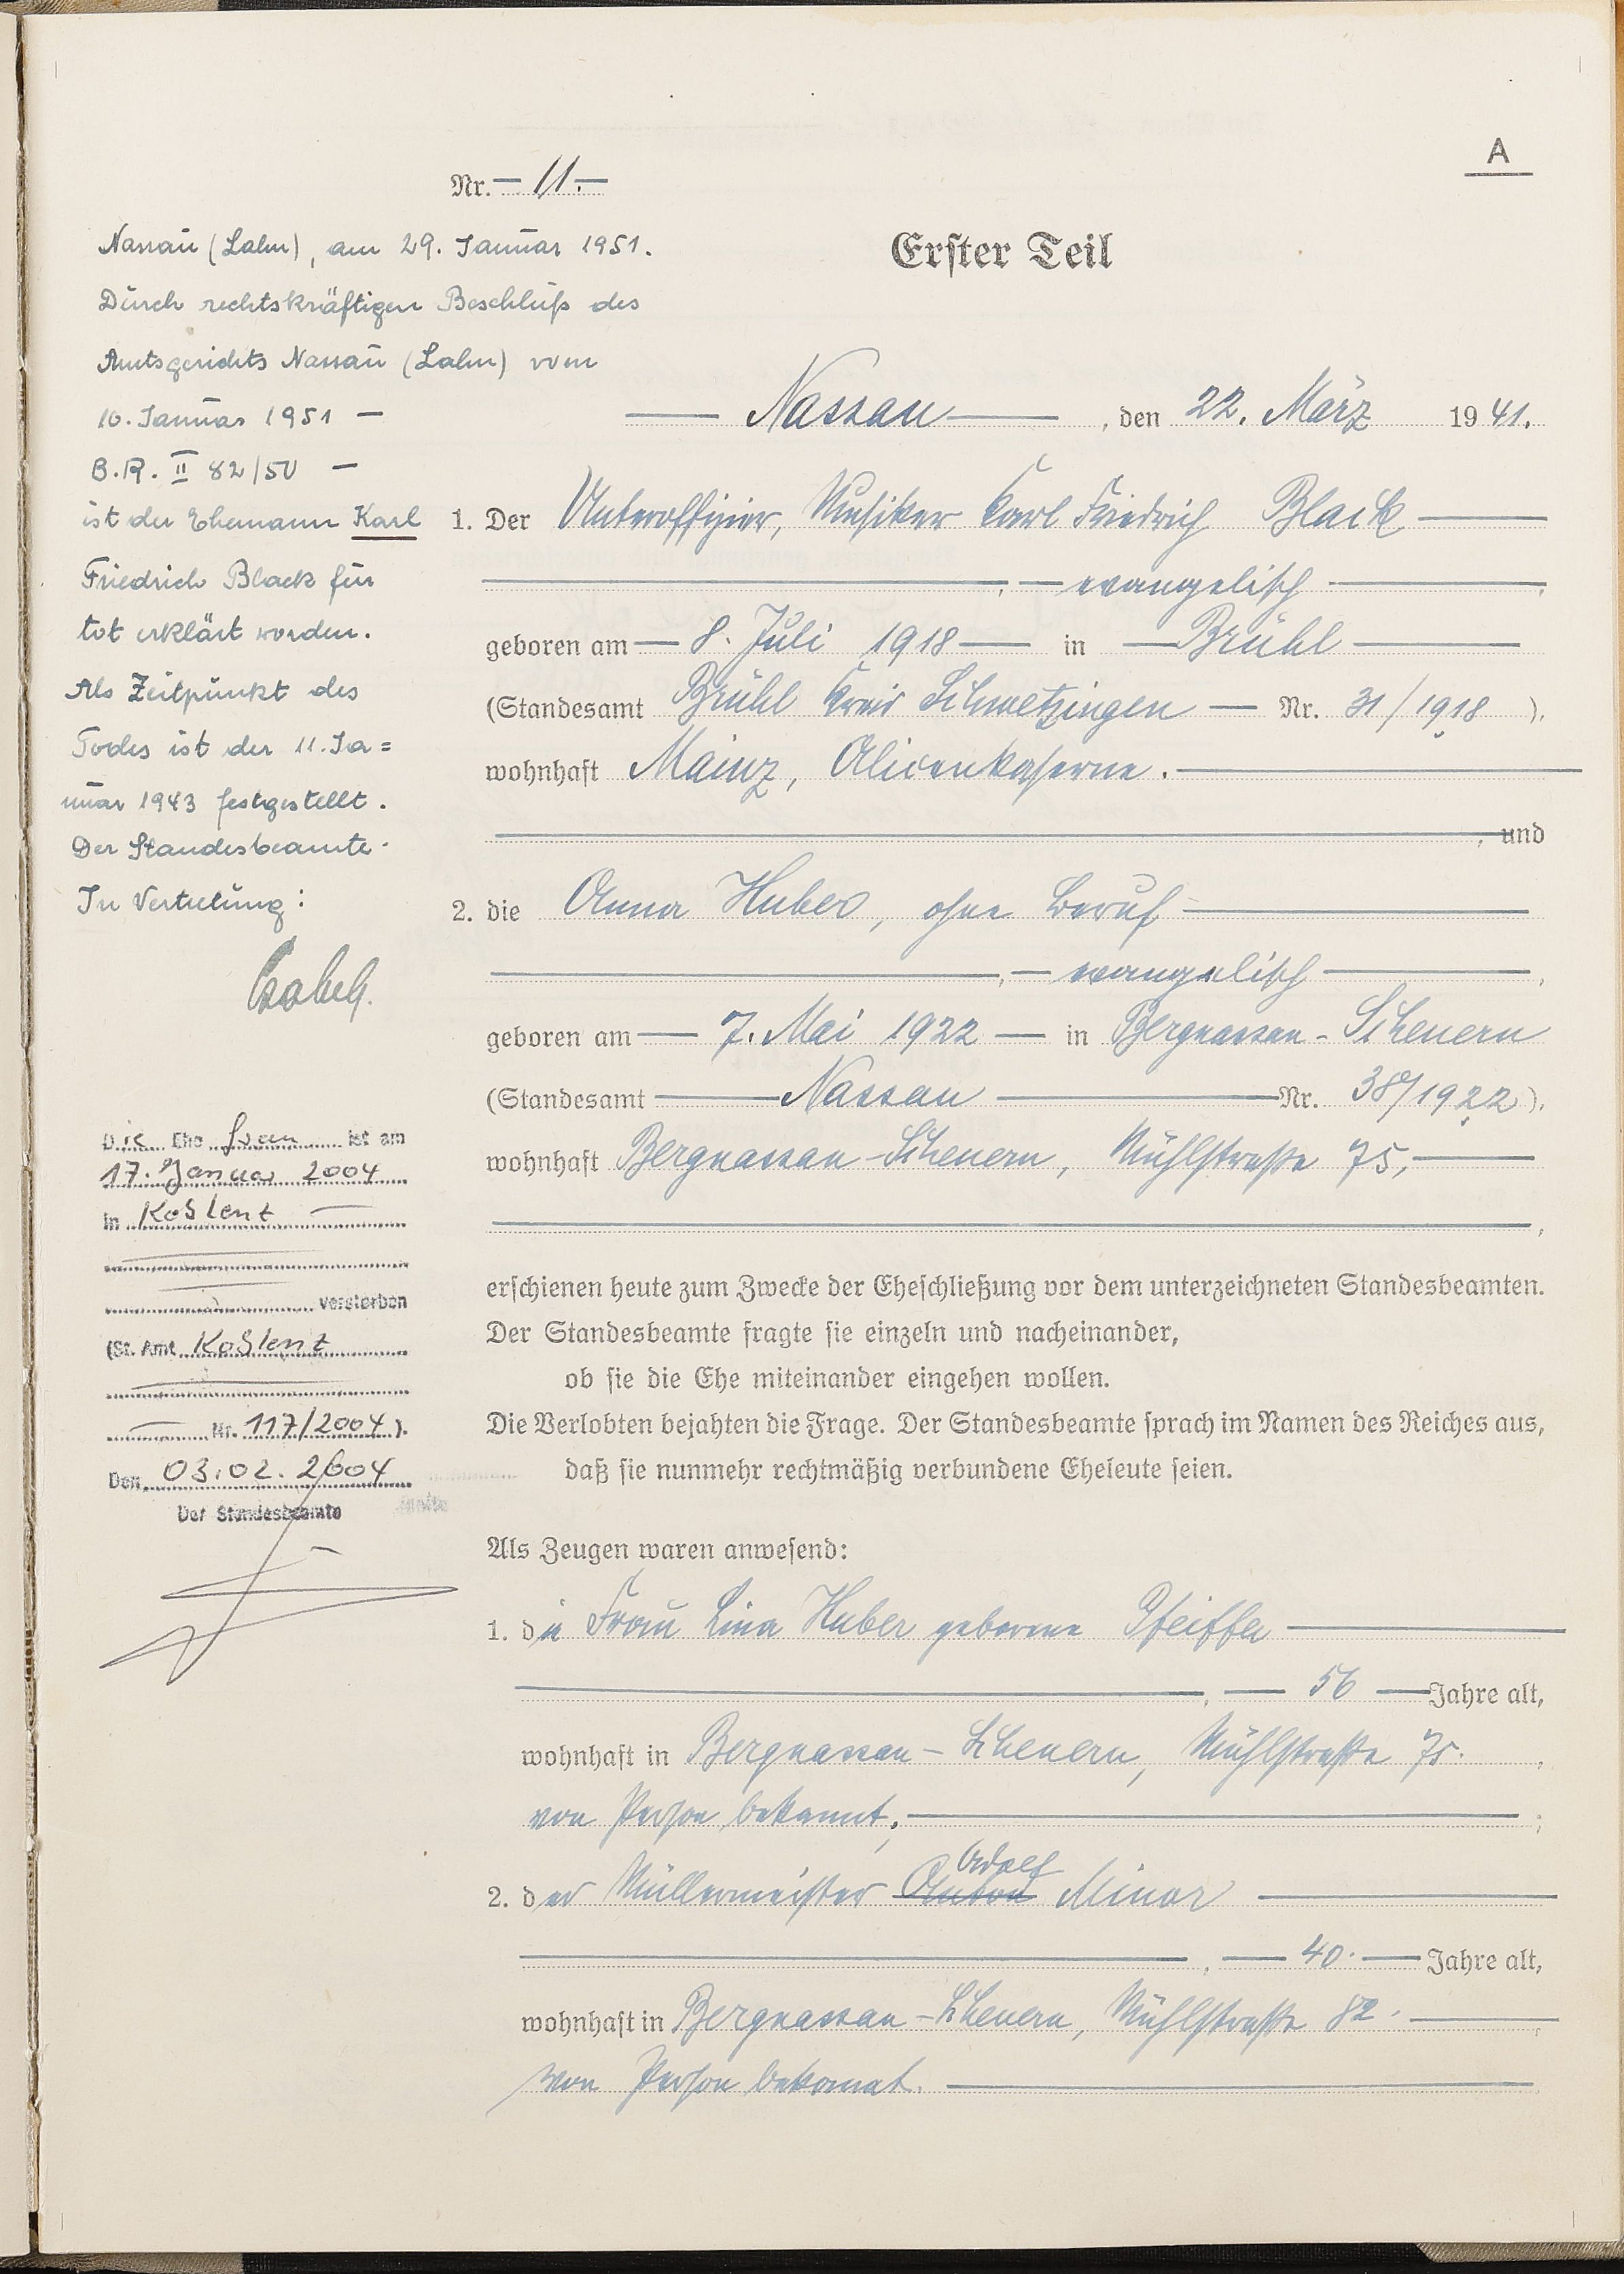 A
Nr. — 11. —
Erster Teil
Nassau (Lahn), am 29. Januar 1951.
Durch rechtskräftigen Beschluß des
Amtsgerichts Nassau (Lahn) vom
10. Januar 1951 —
B.R. II 82/50 —
ist der Ehemann Karl
Friedrich Black für
tot erklärt worden.
Als Zeitpunkt des
Todes ist der 11. Ja=
nuar 1943 festgestellt.
Der Standesbeamte.
In Vertretung:
Die Ehefrau ist am
17. Januar 2004
in Koblenz —
verstorben
(St. Amt Koblenz
— Nr. 117/2004).
Den 03.02.2004
Der Standesbeamte
— Nassau —, den 22. März 1941.
1. Der Unteroffizier, Musiker Karl Friedrich Black —
—, — evangelisch —,
geboren am — 8. Juli 1918 — in — Brühl —
(Standesamt Brühl Kreis Schwetzingen — Nr. 31/1918),
wohnhaft Mainz, Alicenkaserne. —
—, und
2. die Anna Huber, ohne Beruf —
—, — evangelisch —,
geboren am — 7. Mai 1922 — in Bergnassau-Scheuern
(Standesamt — Nassau — Nr. 38/1922),
wohnhaft Bergnassau-Scheuern, Mühlstraße 75, —
—,
erschienen heute zum Zwecke der Eheschließung vor dem unterzeichneten Standesbeamten.
Der Standesbeamte fragte sie einzeln und nacheinander,
ob sie die Ehe miteinander eingehen wollen.
Die Verlobten bejahten die Frage. Der Standesbeamte sprach im Namen des Reiches aus,
daß sie nunmehr rechtmäßig verbundene Eheleute seien.
Als Zeugen waren anwesend:
1. die Frau Lina Huber geborene Pfeiffer —
—, — 56 — Jahre alt,
wohnhaft in Bergnassau-Scheuern, Mühlstraße 75.,
von Person bekannt, —;
Adolf
2. der Müllermeister Anton Minor —
—, — 40. — Jahre alt,
wohnhaft in Bergnassau-Scheuern, Mühlstraße 82. —,
von Person bekannt. —